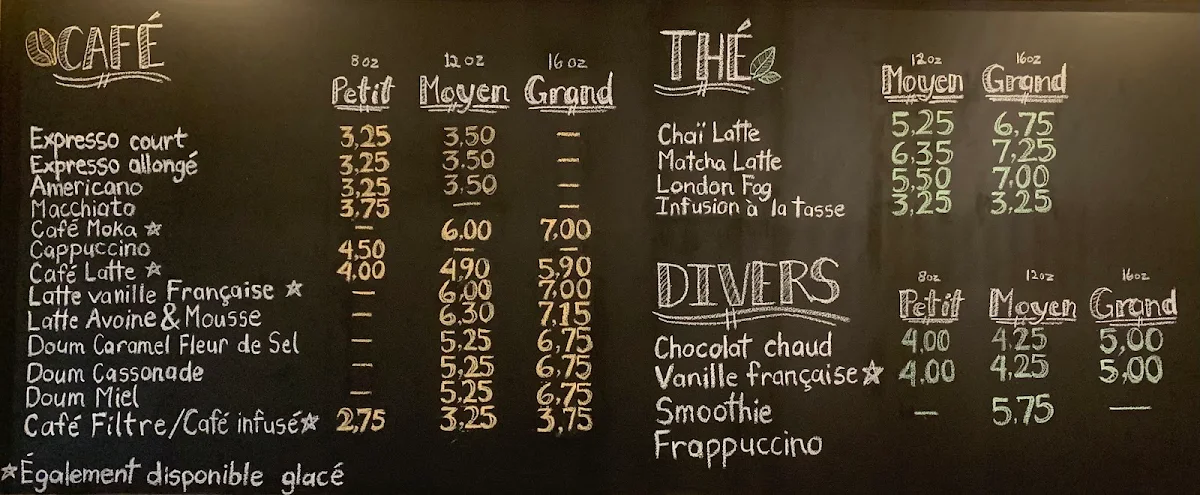 CAFÉ
8 oz 12 oz 16 oz
Petit Moyen Grand
Expresso court 3,25 3,50 —
Expresso allongé 3,25 3.50 —
Americano 3,25 3.50 —
Macchiato 3,75 — —
Café Moka ☆ — 6,00 7,00
Cappuccino 4,50 — —
Café Latte ☆ 4,00 4,90 5,90
Latte vanille Française ☆ — 6,00 7,00
Latte Avoine & Mousse — 6,30 7,15
Doum Caramel Fleur de Sel — 5,25 6,75
Doum Cassonade — 5,25 6,75
Doum Miel — 5,25 6,75
Café Filtre/Café infusé ☆ 2,75 3,25 3,75
☆Également disponible glacé
THÉ
12 oz 16 oz
Moyen Grand
Chaï Latte 5,25 6,75
Matcha Latte 6,35 7,25
London Fog 5,50 7,00
Infusion à la tasse 3,25 3,25
DIVERS
8oz 12oz 16oz
Petit Moyen Grand
Chocolat chaud 4,00 4,25 5,00
Vanille française ☆ 4,00 4,25 5,00
Smoothie — 5,75 —
Frappuccino